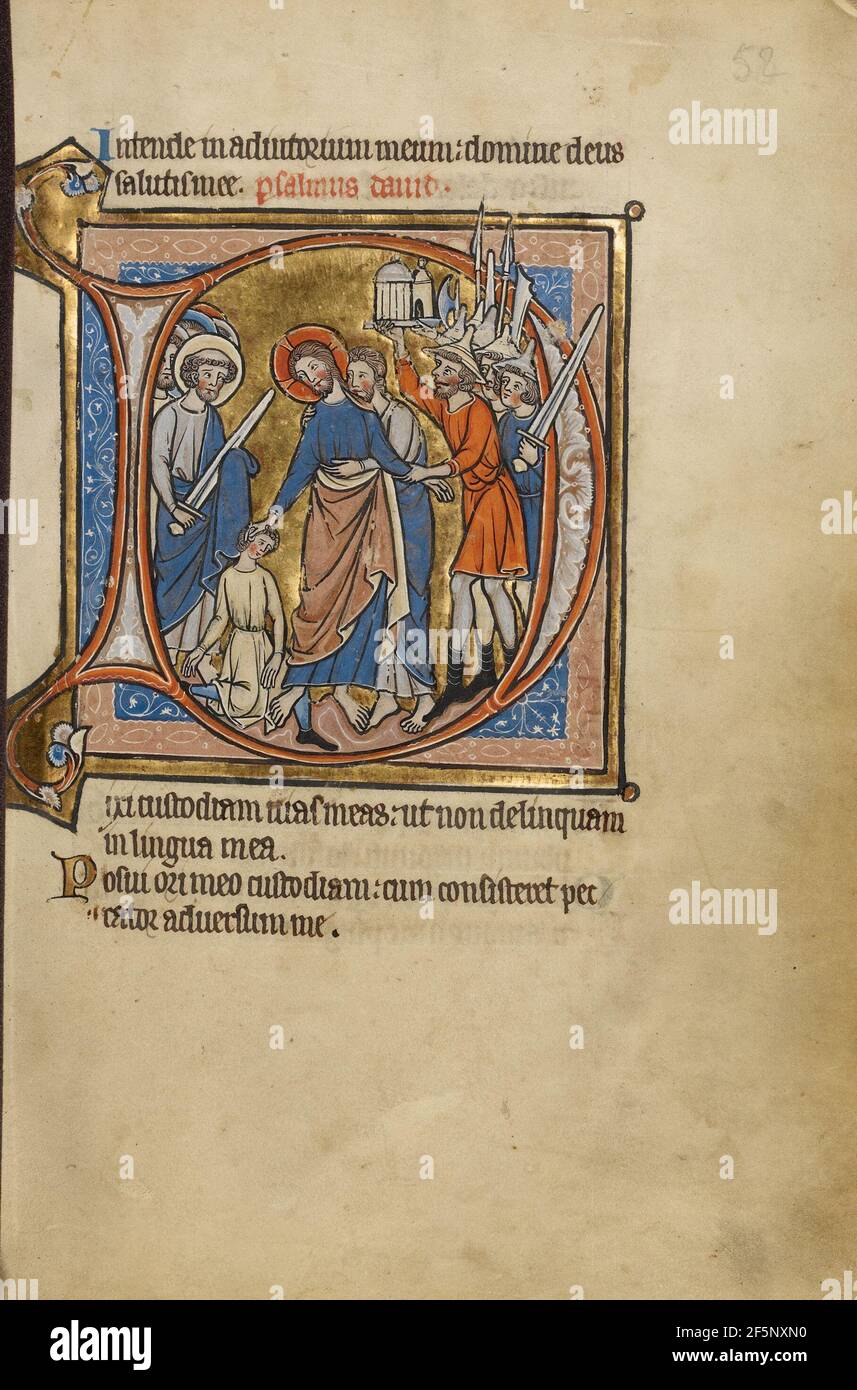 52
Intende in adiutorium meum: domine deus
salutis mee. psalmus dauid.
D
ixi custodiam uias meas: ut non delinquam
in lingua mea.
Posui ori meo custodiam: cum consisteret pec
cator aduersum me.
alamy
Image ID: 2F5NXN0
www.alamy.com